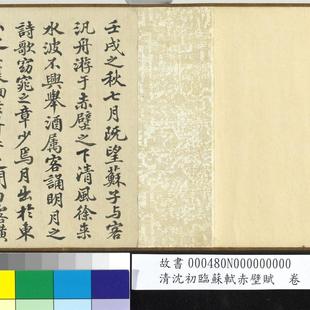 壬戌之秋七月既望蘇子与客
汎舟游于赤壁之下清風徐来
水波不興舉酒属客誦明月之
詩歌窈窕之章少焉月出於東
故書000480N000000000
清沈初臨蘇軾赤壁賦 卷